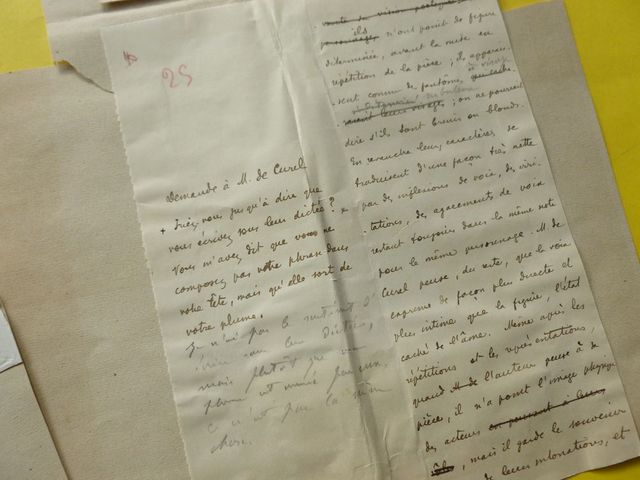 25
Demande à M. de Curel
+ Iriez-vous jusqu'à dire que
vous écrivez sous leur dictée ?
Vous m'avez dit que vous ne
composez pas votre phrase dans
votre tête, mais qu'elle sort de
votre plume.
Je n'ai pas le sentiment d'
écrire sous leur dictée,
mais plutôt que ma
plume est animée par eux.
Ce n'est pas la même
chose.
ils
personnage, n'ont point de figure
déterminée, avant la mise en
répétition de la pièce ; ils apparais-
sent comme des fantômes,
leurs visages ; on ne pourrait
dire s'ils sont bruns ou blonds.
En revanche leurs caractères se
traduisent d'une façon très nette
par des inflexions de voix, des irri-
tations, des agacements de voix
restant toujours dans la même note
pour le même personnage. M. de
Curel pense, du reste, que la voix
exprime de façon plus directe et
plus intime que la figure, l'état
caché de l'âme. Même après les
répétitions et les représentations,
quand M. de l'auteur pense à sa
pièce, il n'a point l'image physique
des acteurs en pensant à leur
rôle, mais il garde le souvenir
de leurs intonations, et